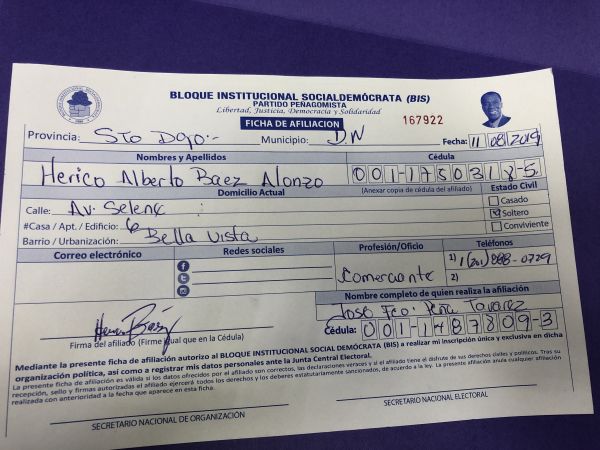 BLOQUE INSTITUCIONAL SOCIALDEMÓCRATA (BIS)
PARTIDO PEÑAGOMISTA
Libertad, Justicia, Democracia y Solidaridad
FICHA DE AFILIACION
167922
Provincia: STO DGO:- Municipio: D.N Fecha: 11/08/2019
Nombres y Apellidos Cédula
Herico Alberto Baez Alonzo 001-1750318-5
Domicilio Actual (Anexar copia de cédula del afiliado) Estado Civil
Calle: Av. Selene Casado
#Casa / Apt. / Edificio: 6 Soltero
Barrio / Urbanización: Bella Vista Conviviente
Correo electrónico Redes sociales Profesión/Oficio Teléfonos
Comerciante 1) 1(201)888-0729
2)
Nombre completo de quien realiza la afiliación
José Fco. Peña Tavarez
Firma del afiliado (Firme igual que en la Cédula) Cédula: 001-1487809-3
Mediante la presente ficha de afiliación autorizo al BLOQUE INSTITUCIONAL SOCIALDEMÓCRATA (BIS) a realizar mi inscripción única y exclusiva en dicha
organización política, así como a registrar mis datos personales ante la Junta Central Electoral.
La presente ficha de afiliación es válida si los datos ofrecidos por el afiliado son correctos, las declaraciones veraces y si el afiliado tiene el disfrute de sus derechos civiles y políticos. Tras su
recepción, sello y firmas autorizadas el afiliado ejercerá todos los derechos y los deberes estatutariamente sancionados, de acuerdo a la ley. La presente afiliación anula cualquier afiliación
realizada con anterioridad a la fecha que aparece en esta ficha.
SECRETARIO NACIONAL DE ORGANIZACIÓN SECRETARIO NACIONAL ELECTORAL